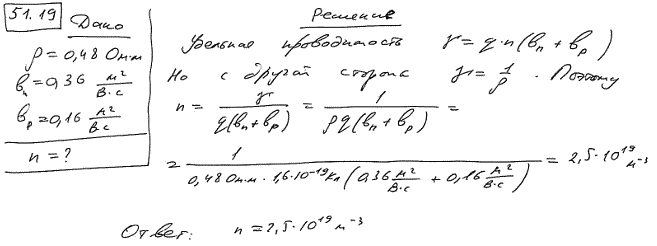 51.19
Дано
ρ = 0,48 Ом·м
bₙ = 0,36 м²/В·с
bₚ = 0,16 м²/В·с
n = ?
Решение
Удельная проводимость γ = q·n(bₙ + bₚ)
Но с другой стороны γ = 1/ρ . Поэтому
n = γ/q(bₙ+bₚ) = 1/ρq(bₙ+bₚ) =
= 1/0,48 Ом·м · 1,6·10⁻¹⁹ Кл (0,36 м²/В·с + 0,16 м²/В·с) = 2,5·10¹⁹ м⁻³
Ответ: n = 2,5·10¹⁹ м⁻³